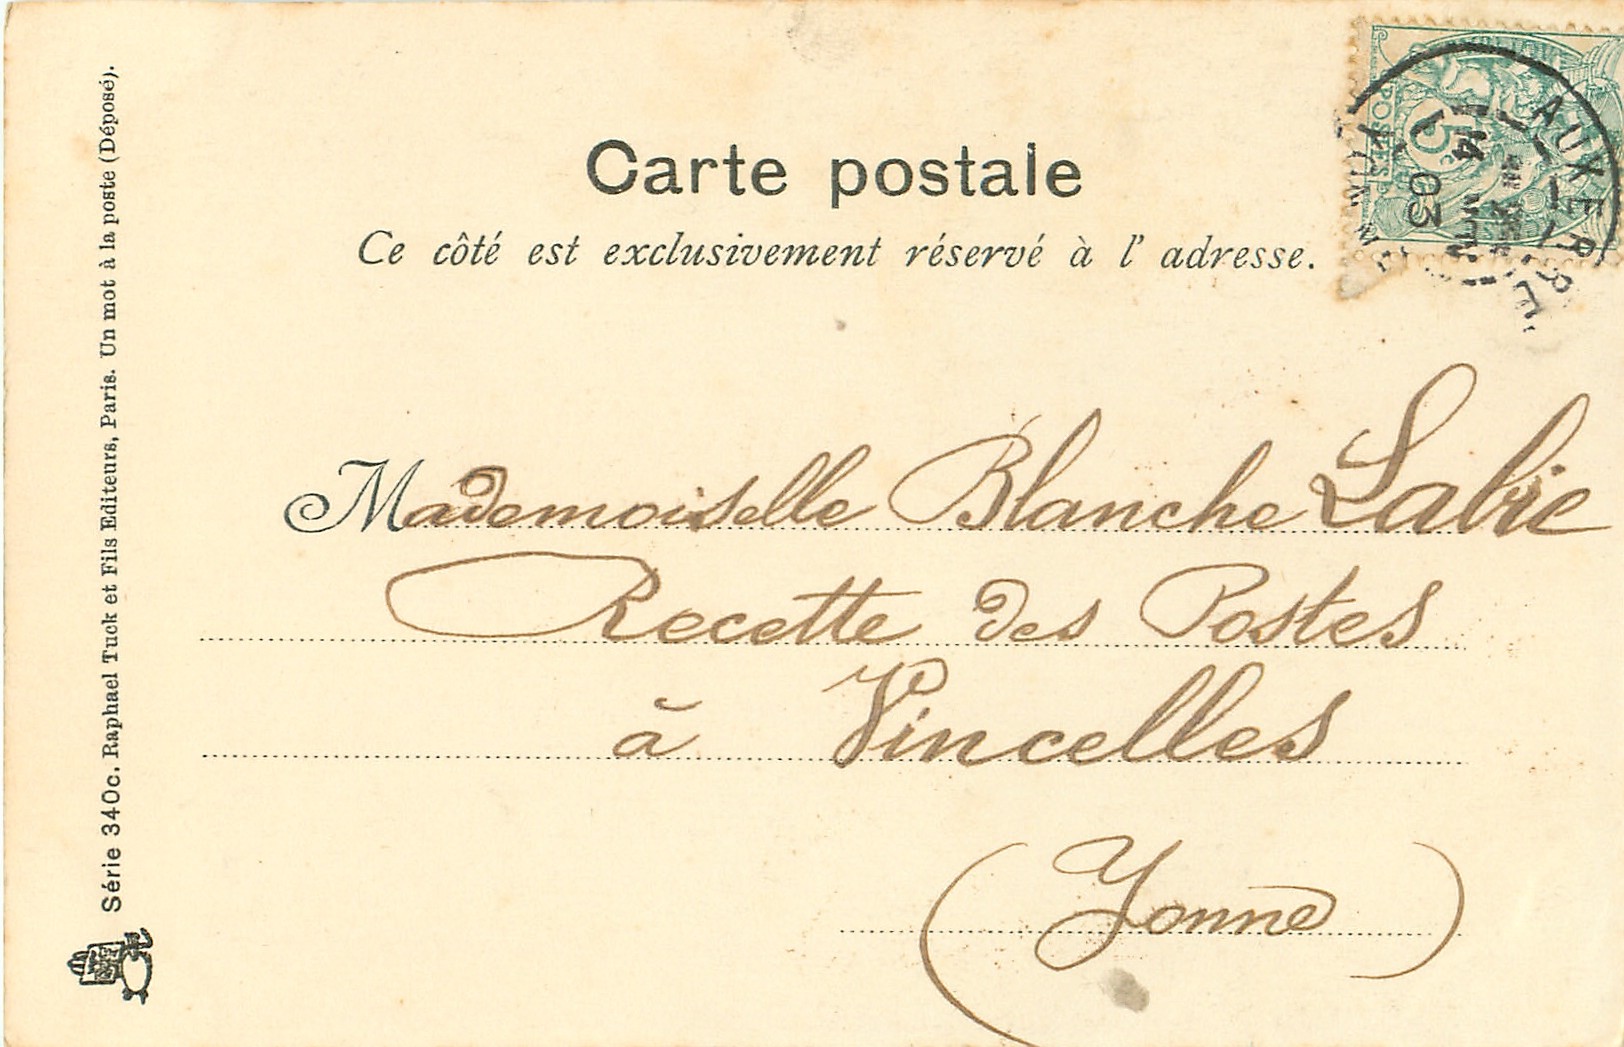 Carte postale
Ce côté est exclusivement réservé à l' adresse.
Mademoiselle Blanche Labie
Recette des Postes
à Vincelles
(Yonne)
Série 340c. Raphael Tuck et Fils Editeurs, Paris. Un mot à la poste (Déposé).
AUXERRE
YONNE
14
03
5c